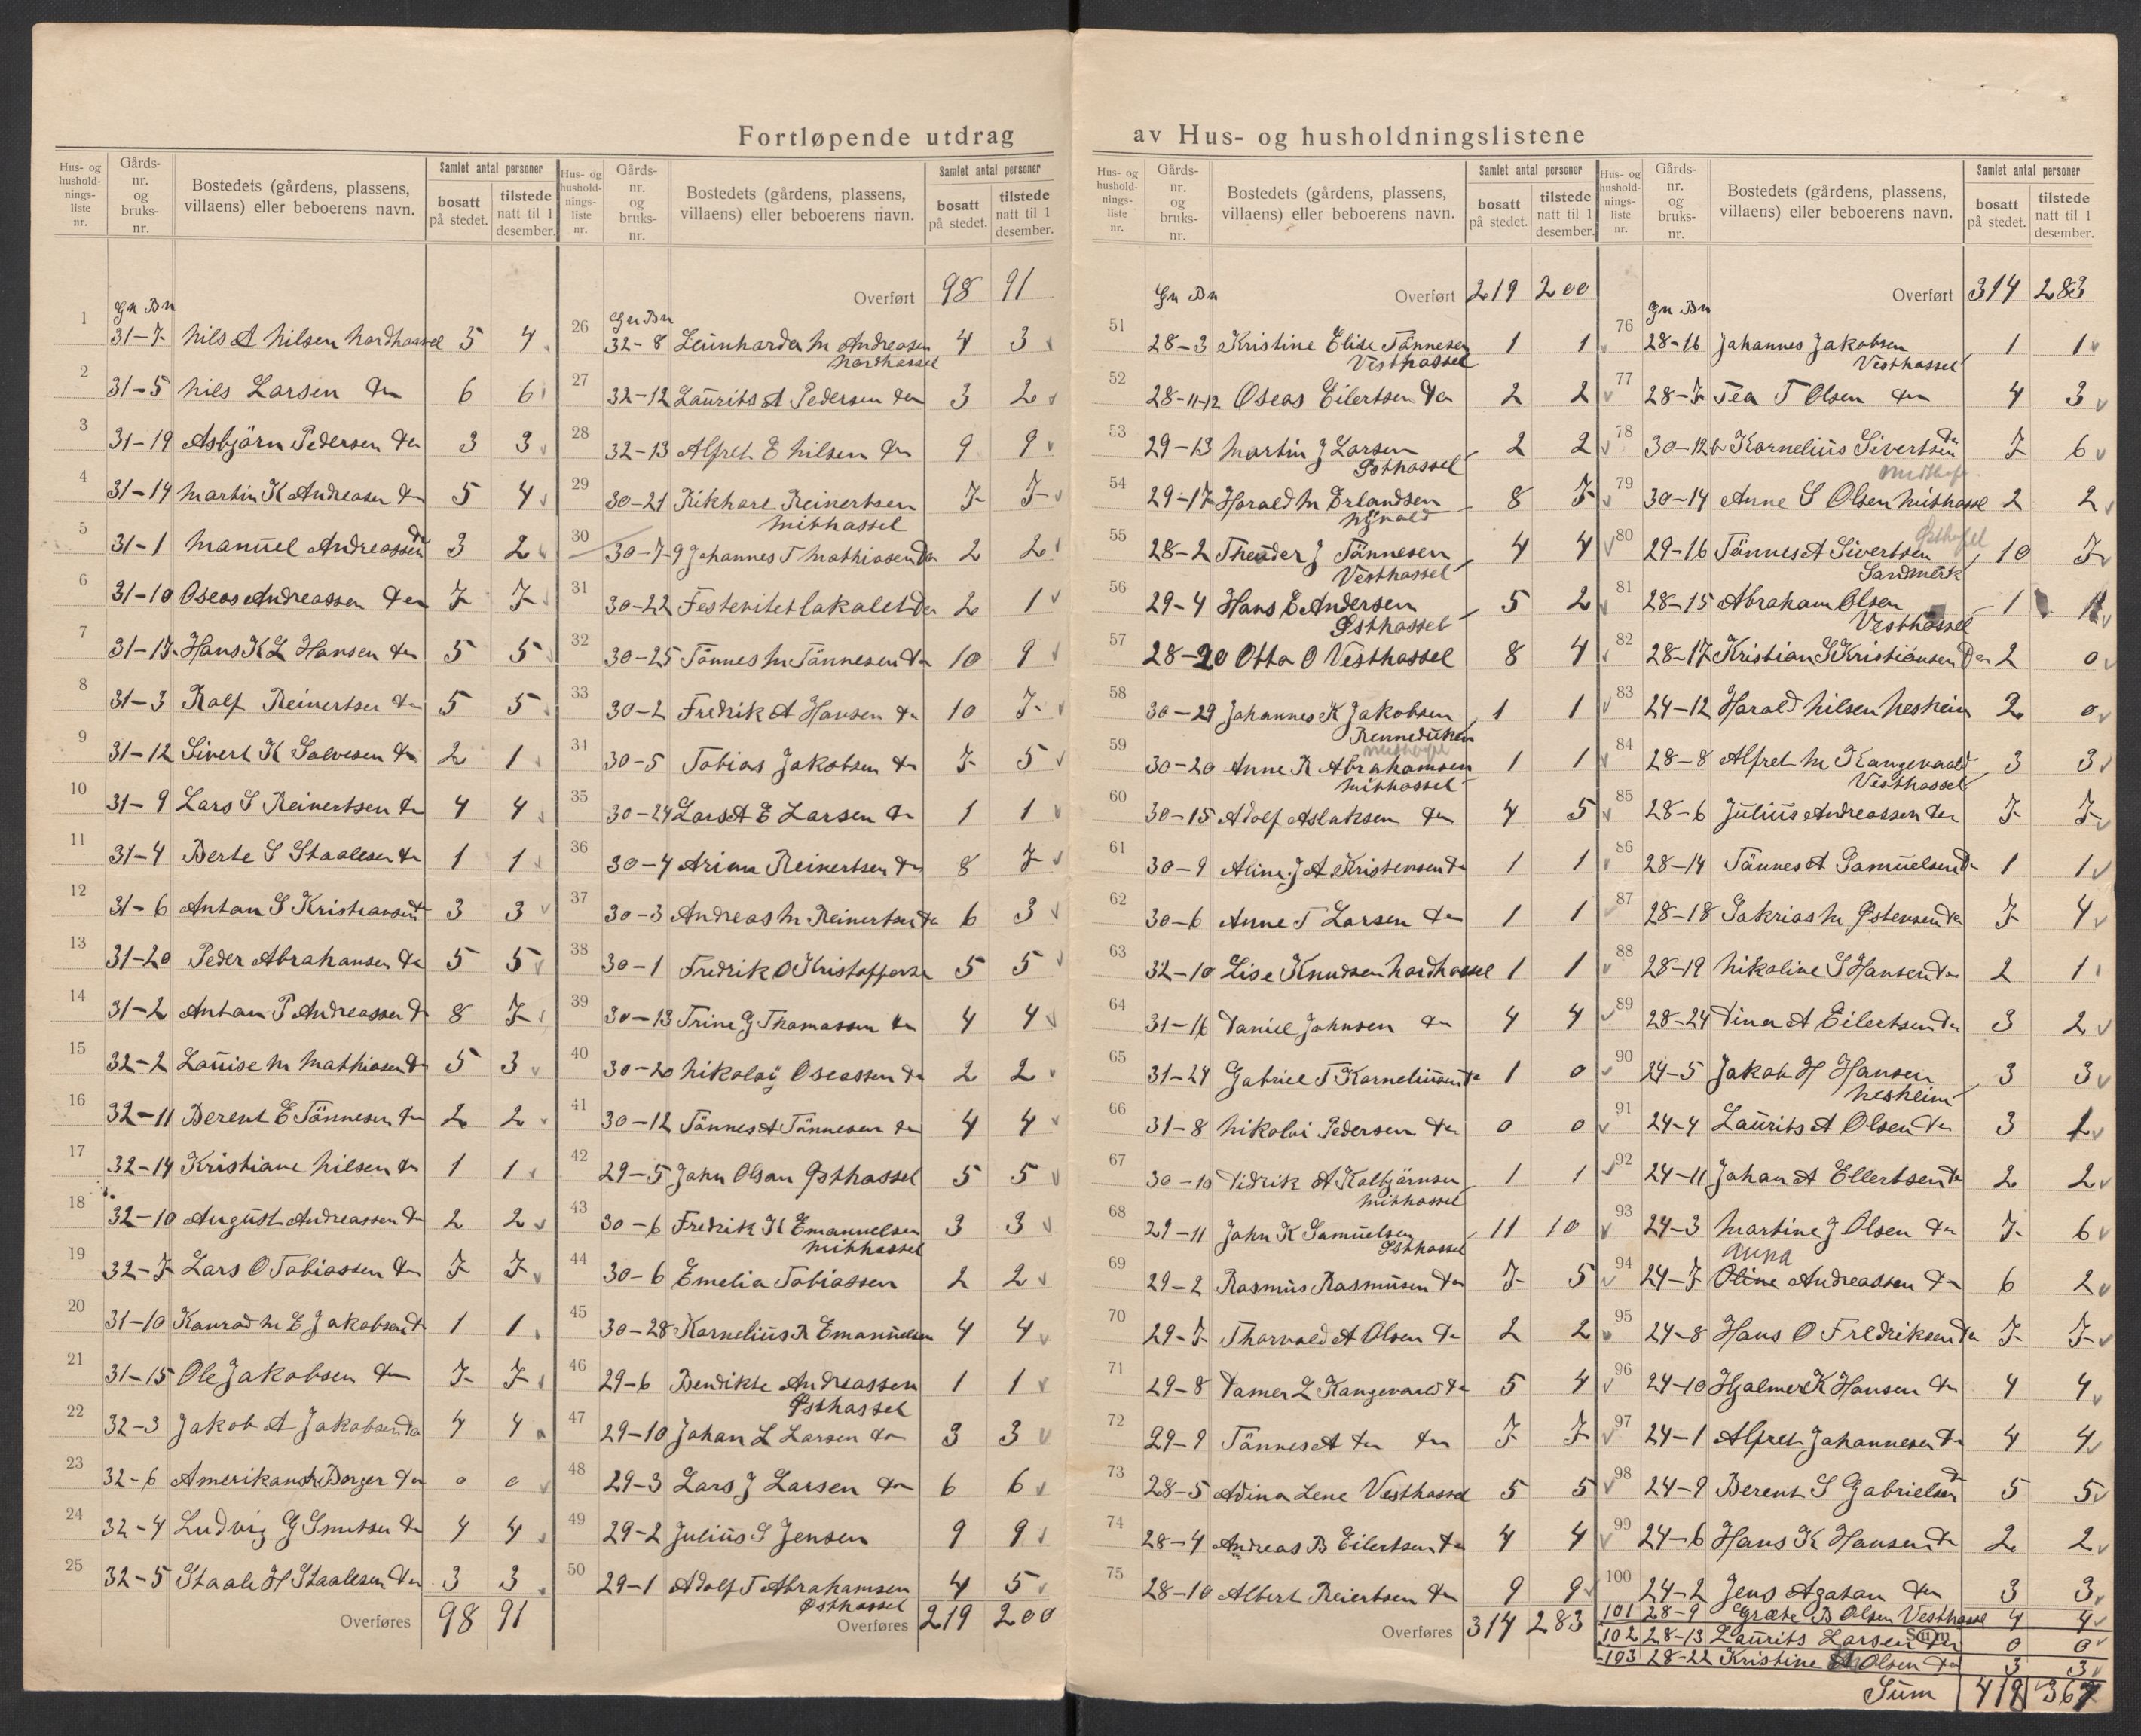 Fortløpende utdrag av Hus- og husholdningslistene
Hus- og husholdnings-liste nr. Gårds-nr. og bruks-nr. Bostedets (gårdens, plassens, villaens) eller beboerens navn. Samlet antal personer bosatt på stedet. tilstede natt til 1 desember.
Gn Bn
1 31-7 Nils A Nilsen Nordhassel 5 4
2 31-5 Nils Larsen Do 6 6
3 31-19 Asbjörn Pedersen Do 3 3
4 31-14 Martin K Andreasen Do 5 4
5 31-1 Manuel Andreassen Do 3 2
6 31-10 Oseas Andreassen Do 7 7
7 31-17 Hans K L Hansen Do 5 5
8 31-3 Ralf Reinertsen Do 5 5
9 31-12 Sivert K Salvesen Do 2 1
10 31-9 Lars S Reinertsen Do 4 4
11 31-4 Berte S Staalesen Do 1 1
12 31-6 Anton S Kristiansen Do 3 3
13 31-20 Peder Abrahansen Do 5 5
14 31-2 Anton P Andreassen Do 8 7
15 32-2 Louise M Mathiasen Do 5 3
16 32-11 Berent E Tönnesen Do 2 2
17 32-14 Kristiane Nilsen Do 1 1
18 32-10 August Andreassen Do 2 2
19 32-7 Lars O Tobiassen Do 7 7
20 31-10 Konrad M E Jakobsen Do 1 1
21 31-15 Ole Jakobsen Do 7 7
22 32-3 Jakob A Jakobsen Do 4 4
23 32-6 Amerikansk Borger Do 0 0
24 32-4 Ludvig G Smutsen Do 4 4
25 32-5 Staale H Staalesen Do 3 3
Overføres 98 91
Hus- og husholdnings-liste nr. Gårds-nr. og bruks-nr. Bostedets (gårdens, plassens, villaens) eller beboerens navn. Samlet antal personer bosatt på stedet. tilstede natt til 1 desember.
Overført 98 91
Gn Bn
26 32-8 Leonharda M Andreasen 4 3
Nordhassel
27 32-12 Laurits A Pedersen Do 3 2
28 32-13 Alfret E Nilsen Do 9 9
29 30-21 Rikhart Reinertsen 7 7
Mithassel
30 30-7-9 Johannes T Mathiasen Do 2 2
31 30-22 Festevitetlokalet Do 2 1
32 30-25 Tönnes M Tönnesen Do 10 9
33 30-2 Fredrik A Hansen Do 10 7
34 30-5 Tobias Jakobsen Do 7 5
35 30-24 Lars A E Larsen Do 1 1
36 30-4 Arian Reinertsen Do 8 7
37 30-3 Andreas M Reinertsen Do 6 3
38 30-1 Fredrik O Kristoffersen 5 5
39 30-13 Trine G Thomassen Do 4 4
40 30-20 Nikolay Oseassen Do 2 2
41 30-12 Tönnes A Tönnesen Do 4 4
42 29-5 John Olsen Østhassel 5 5
43 30-6 Fredrik K Emanuelsen 3 3
Mithassel
44 30-6 Emelia Tobiassen 2 2
45 30-28 Kornelius R Emanuelsen 4 4
46 29-6 Bendikte Andreassen 1 1
Østhassel
47 29-10 Johan L Larsen Do 3 3
48 29-3 Lars J Larsen Do 6 6
49 29-2 Julius S Jensen 9 9
50 29-1 Adolf T Abrahamsen 4 5
Østhassel
Overføres 219 200
Hus- og husholdnings-liste nr. Gårds-nr. og bruks-nr. Bostedets (gårdens, plassens, villaens) eller beboerens navn. Samlet antal personer bosatt på stedet. tilstede natt til 1 desember.
Gn Bn Overført 219 200
51 28-3 Kristine Elise Tönnesen 1 1
Vesthassel
52 28-11-12 Oseas Eilertsen Do 2 2
53 29-13 Martin J Larsen 2 2
Østhassel
54 29-17 Harald M Erlandsen 8 7
55 28-2 Theoder J Tönnesen 4 4
Vesthassel
56 29-4 Hans E Andersen 5 2
Østhassel
57 28-20 Otto O Vesthassel 8 4
58 30-29 Johannes K Jakobsen 1 1
59 30-20 Anne R Abrahamsen 1 1
Mithassel
60 30-15 Adolf Aslaksen Do 4 5
61 30-9 Aline J A Kristensen Do 1 1
62 30-6 Anne T Larsen Do 1 1
63 32-10 Lise Knudsen Nordhassel 1 1
64 31-16 Daniel Johnsen Do 4 4
65 31-24 Gabriel T Korneliussen Do 1 0
66 31-8 Nikolai Pedersen Do 0 0
67 30-10 Didrik A Kolbjörnsen 1 1
Mithassel
68 29-11 John K Samuelsen 11 10
Østhassel
69 29-2 Rasmus Rasmusen Do 7 5
70 29-7 Thorvald A Olsen Do 2 2
71 29-8 Damer L Kangevald Do 5 4
72 29-9 Tönnes A Do Do 7 7
73 28-5 Adina Lene Vesthassel 5 5
74 28-4 Andreas B Eilertsen Do 4 4
75 28-10 Albert Reiertsen Do 9 9
Overføres 314 283
Hus- og husholdnings-liste nr. Gårds-nr. og bruks-nr. Bostedets (gårdens, plassens, villaens) eller beboerens navn. Samlet antal personer bosatt på stedet. tilstede natt til 1 desember.
Overført 314 283
Gn Bn
76 28-16 Johannes Jakobsen 1 1
Vesthassel
77 28-7 Tea T Olsen Do 4 3
78 30-12b Kornelius Sivertsen Do 7 6
79 30-14 Anne S Olsen Mithassel 2 2
80 29-16 Tönnes A Sivertsen 10 7
Sandmerk
81 28-15 Abraham Olsen 1 1
Vesthassel
82 28-17 Kristian S Kristiansen Do 2 0
83 24-12 Harald Nilsen Nesheim 2 0
84 28-8 Alfret M Kangevald 3 3
Vesthassel
85 28-6 Julius Andreassen Do 7 7
86 28-14 Tönnes A Samuelsen Do 1 1
87 28-18 Sakrias M Østensen Do 7 4
88 28-19 Nikoline S Hansen Do 2 1
89 28-24 Dina A Eilertsen Do 3 2
90 24-5 Jakob H Hansen 3 3
Nesheim
91 24-4 Laurits A Olsen Do 3 1
92 24-11 Johan A Ellertsen Do 2 2
93 24-3 Martine J Olsen Do 7 6
Anna
94 24-7 Oline Andreassen Do 6 2
95 24-8 Hans O Fredriksen Do 7 7
96 24-10 Hjalmer K Hansen Do 4 4
97 24-1 Alfret Johannesen Do 4 4
98 24-9 Berent S Gabrielsen Do 5 5
99 24-6 Hans K Hansen Do 2 2
100 24-2 Jens Agatan Do 3 3
101 28-9 Græte B Olsen Vesthassel 4 4
102 28-13 Laurits Larsen Do 0 0
Sum
103 28-22 Kristine Olsen Do 3 3
Sum 418 367